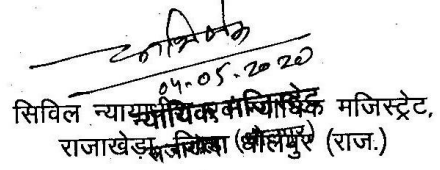 04.05.2020
सिविल न्यायाधीश एवं न्यायिक मजिस्ट्रेट,
राजाखेड़ा, जिला (धौलपुर) (राज.)